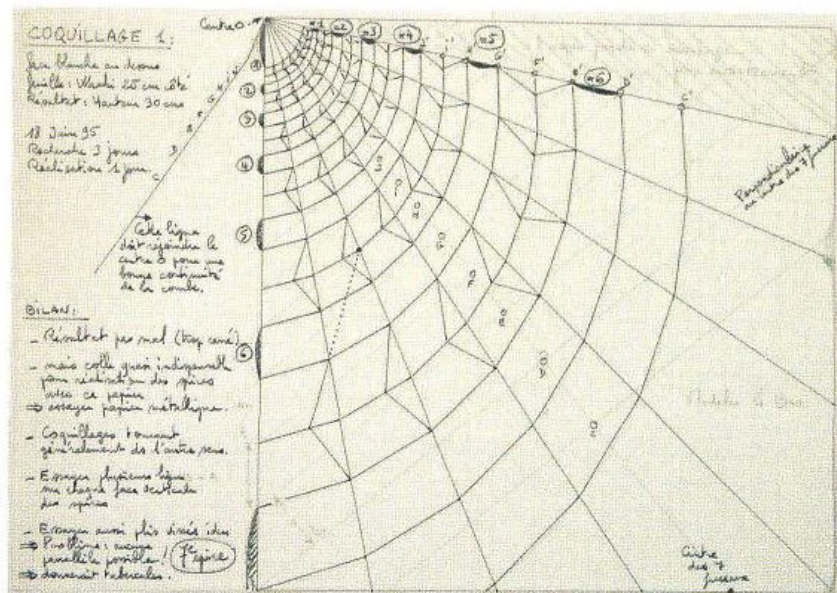 COQUILLAGE 1:
face blanche au dessus
feuille: Washi 25 cm côté
Résultat: Hauteur 30 cm
18 Juin 95
Recherche 3 jours
Réalisation 1 jour.
Cette ligne
doit rejoindre le
centre O pour une
bonne continuité
de la combe.
BILAN:
- Résultat pas mal (trop carré)
- mais colle quasi indispensable
pour réalisation des spires
avec ce papier
⇒ essayer papier métallique.
- Coquillages tournent
généralement ds l'autre sens.
- Essayer plusieurs lignes
sur chaque face verticale
des spires
- Essayer aussi plis
⇒ Problème: aucune
parallèle possible!
⇒ donnerait tubercules.
7e spire
Centre O
1
2
3
4
5
6
C
D
m1
m2
m3
m4
m5
m6
F'
E'
D'
C'
Perpendiculaire
au centre des 7 fuseaux
D
Centre
des 7
fuseaux